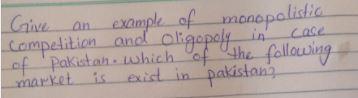 Give an example of monopolistic
Competition and Oligopoly in case
of Pakistan. which of the following
market is exist in pakistan?